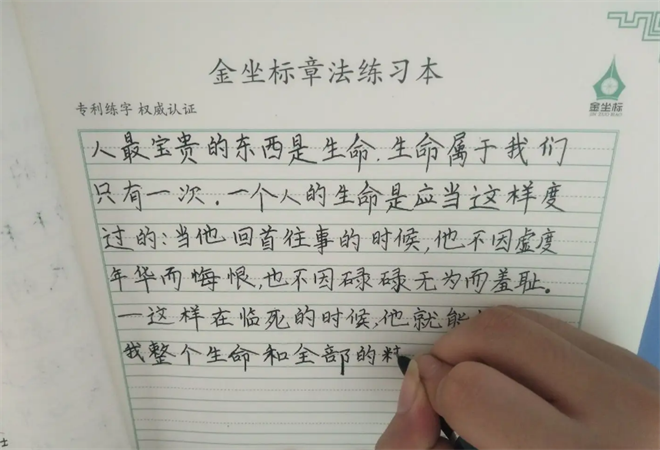 金坐标章法练习本
专利练字 权威认证
金坐标
人最宝贵的东西是生命.生命属于我们
只有一次.一个人的生命是应当这样度
过的:当他回首往事的时候,他不因虚度
年华而悔恨,也不因碌碌无为而羞耻。
一这样在临死的时候,他就能
我整个生命和全部的
士